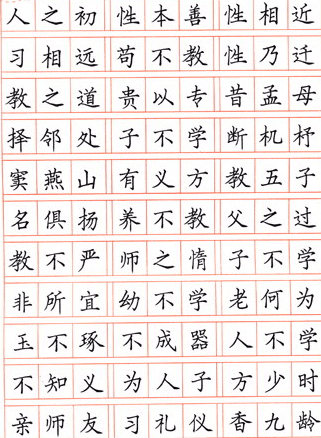 人之初 性本善 性相近
习相远 苟不教 性乃迁
教之道 贵以专 昔孟母
择邻处 子不学 断机杼
窦燕山 有义方 教五子
名俱扬 养不教 父之过
教不严 师之惰 子不学
非所宜 幼不学 老何为
玉不琢 不成器 人不学
不知义 为人子 方少时
亲师友 习礼仪 香九龄